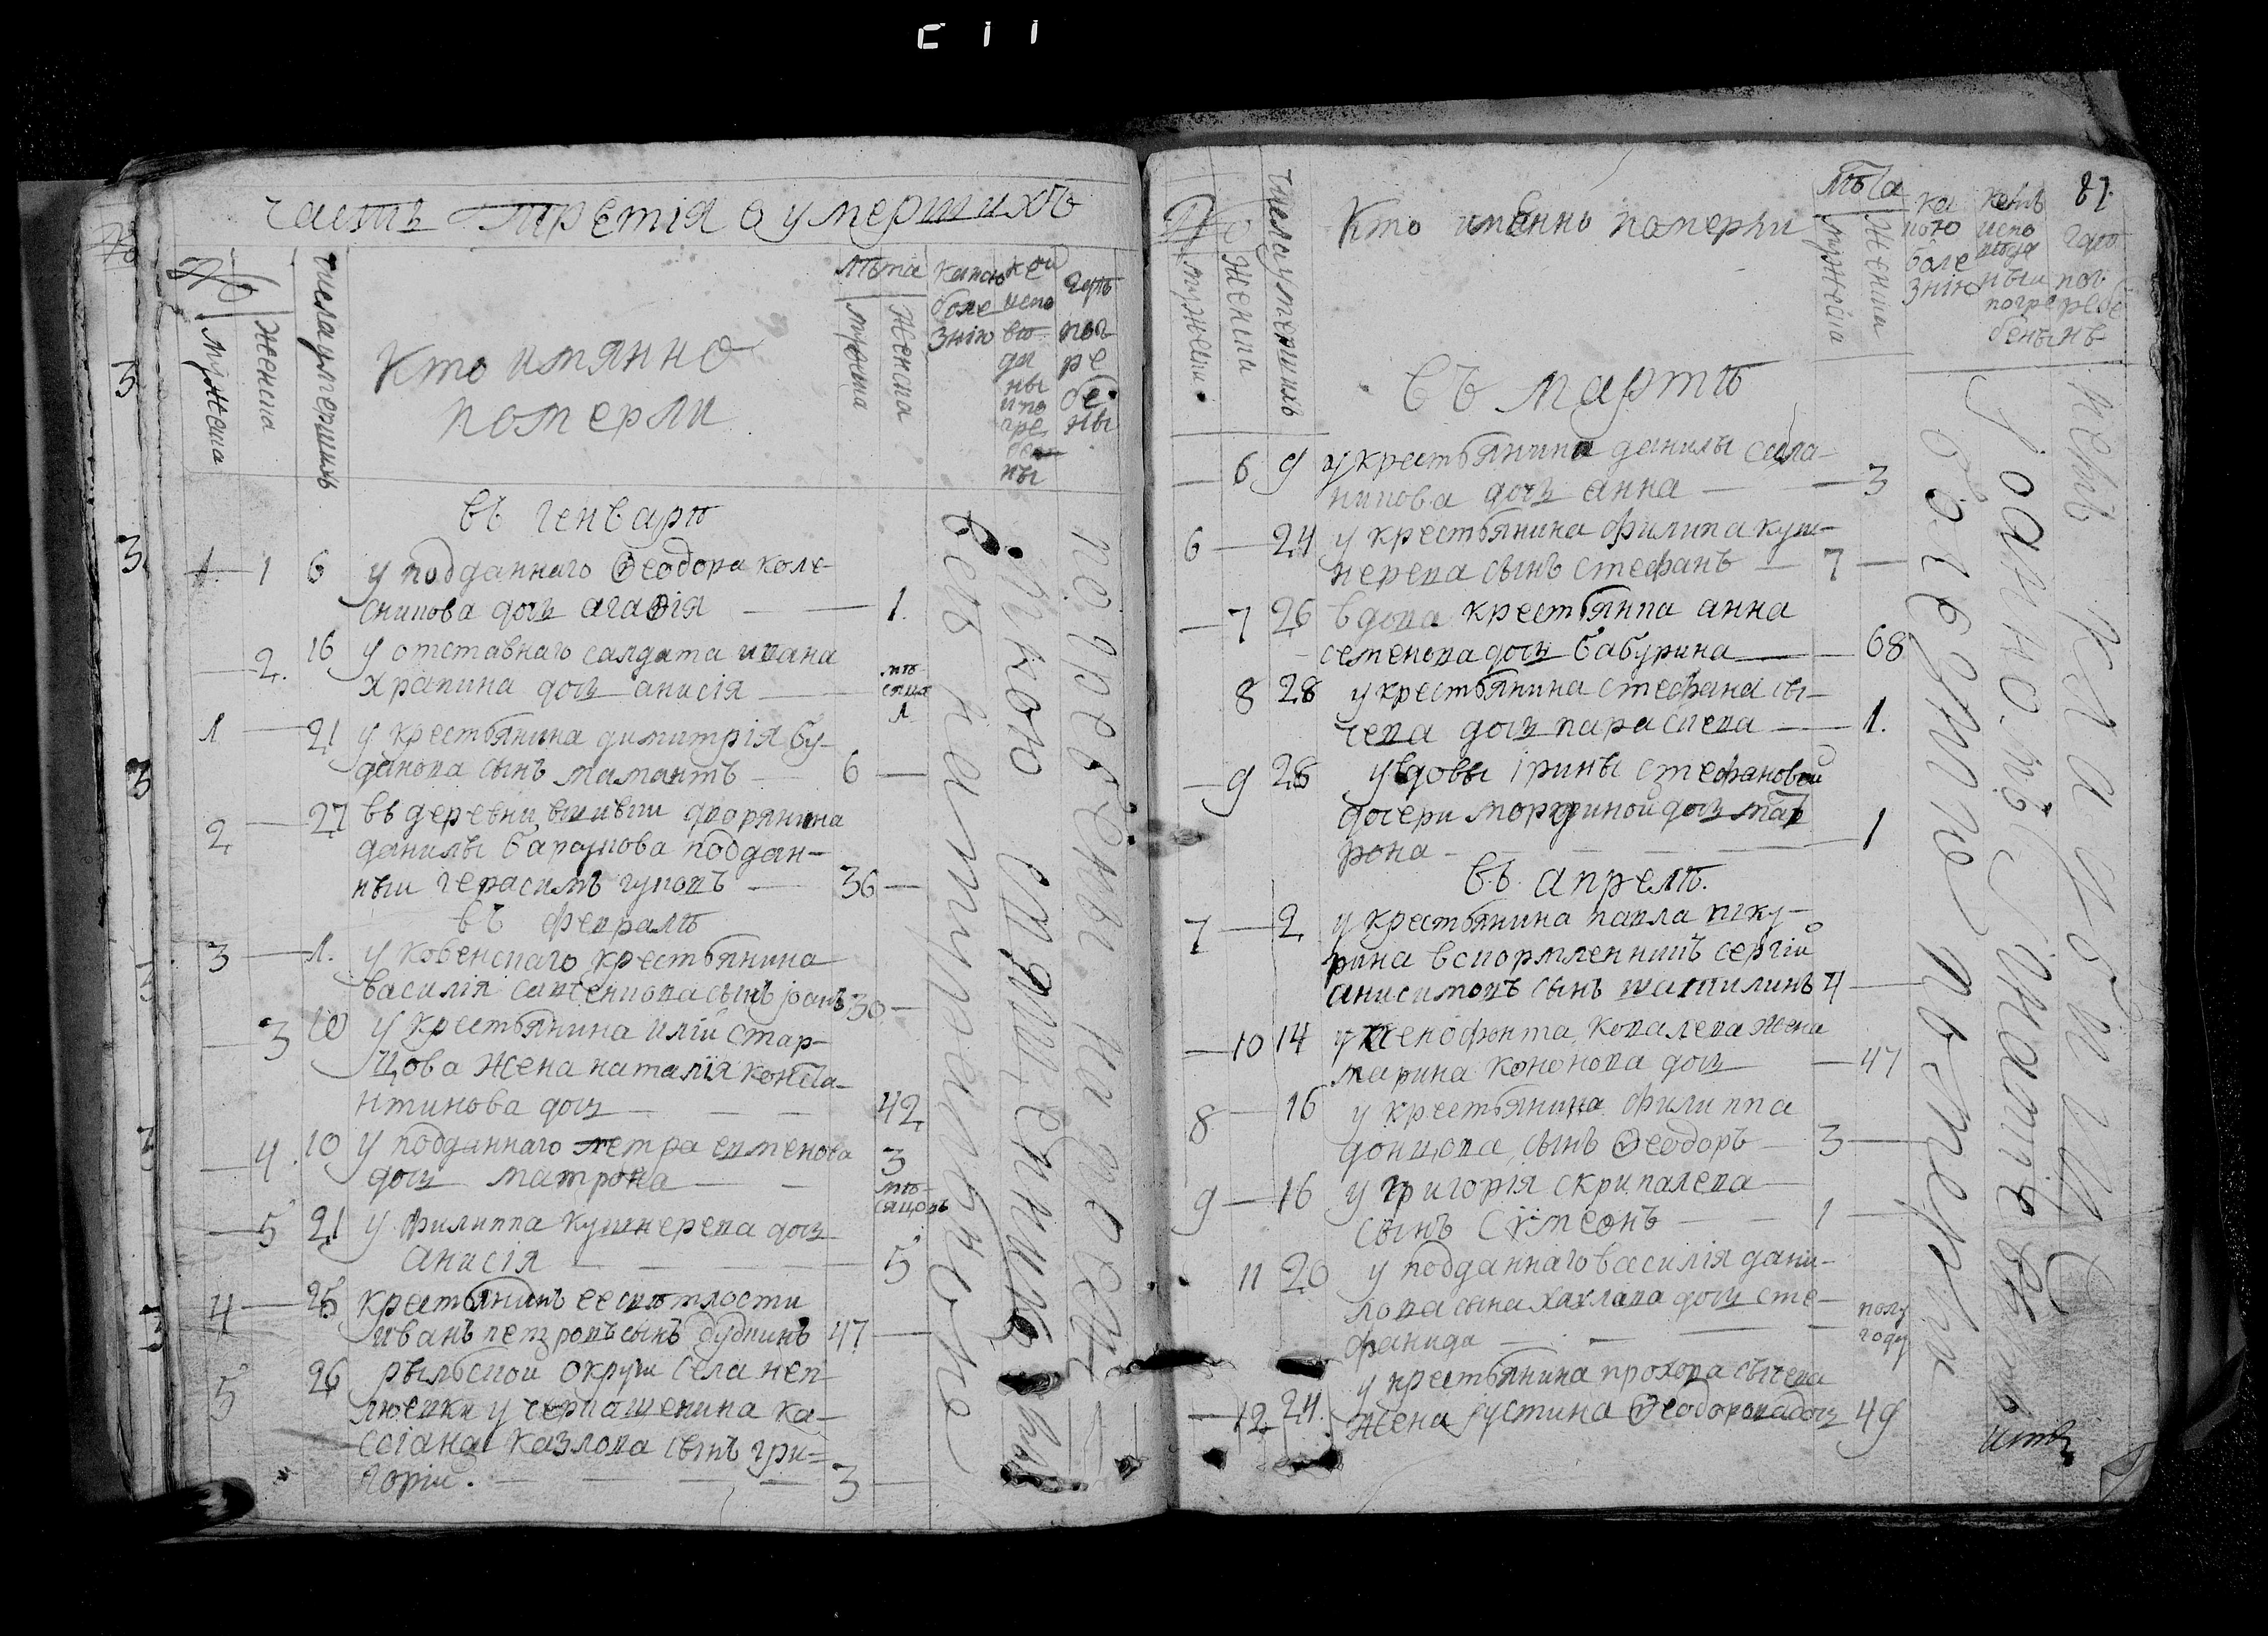 C I I
часть третія о умершихъ
№
мужеска
женска
числа умершихъ
Кто имянно
померли
лѣта
мужеска
женска
какою
боле
знію
кои
испо
вѣ
да
ны
и по
гре
ны
гдѣ
пог
ре
бе
ны
въ генварѣ
1 6 у подданнаго Ѳеодора коле-
сникова дочь агаѳія — 1.
2. 16 у отставнаго салдата ивана
храпина дочь анисія — мѣ-
сяца
1
1 — 21 у крестьянина димитрія бу-
данова сынъ мамантъ — 6 —
2 — 27 въ деревни дворянина
данилы поддан-
ныи герасимъ гуковъ — 36 —
въ февралѣ
3 — 1. у ковенскаго крестьянина
василія сынъ іоанъ 30 —
3 10 у крестьянина иліи стар-
цова жена наталія конста-
нтинова дочь — — — 42
4 10 у подданнаго петра евменова 3
дочь матрона — — мѣ-
сяцовъ
5 21 у филиппа кушнерева дочь
анисія — — — 5
4 — 25 крестьянинъ ее свѣтлости
иванъ петровъ сынъ дудкинъ 47 —
5 26 рыльской округи села неп-
люевки у черкашенина ка-
ссіана казлова сынъ гри-
горіи. — — — 3 —
погребены на гробищ
87.
№
мужеска
женска
числа умершихъ
Кто имѣнно померли
лѣта
мужеска
женска
ка
кою
боле
знію
кемъ
испо
вѣда
ныи
погре
бены
гдѣ
пог
ребе
нъ
въ мартѣ
— 6 9 у крестьянина данилы сала-
никова дочь анна — — 3
6 — 24 у крестьянина филипа куш-
нерева сынъ стефанъ — 7 —
— 7 26 вдова крестьянка анна
семенова дочь бабурина — — 68
8 28 у крестьянина стефана сы-
чева дочь параскева — 1.
— 9 28 у вдовы ірины стефановой
дочери дочь мат
рона — — — — 1
въ апрелѣ.
7 — 2 у крестьянина павла шку-
рина вскормленникъ сергій
анисимовъ сынъ шатилинъ 4 —
— 10 14 у ксенофонта ковалева жена
марина кононова дочь — 47
8 — 16 у крестьянина филиппа
донцова, сынъ Ѳеодоръ — 3 —
9 — 16 у григорія скрипалева
сынъ сѵмеонъ — — 1 —
11 20 у подданнаго василія дани-
лова сына хахлова дочь сте-
фанида — — — полу
году
у крестьянина прохора сычева
— 12 24. жена іустина Ѳеодорова дочь 49
болезнію померли